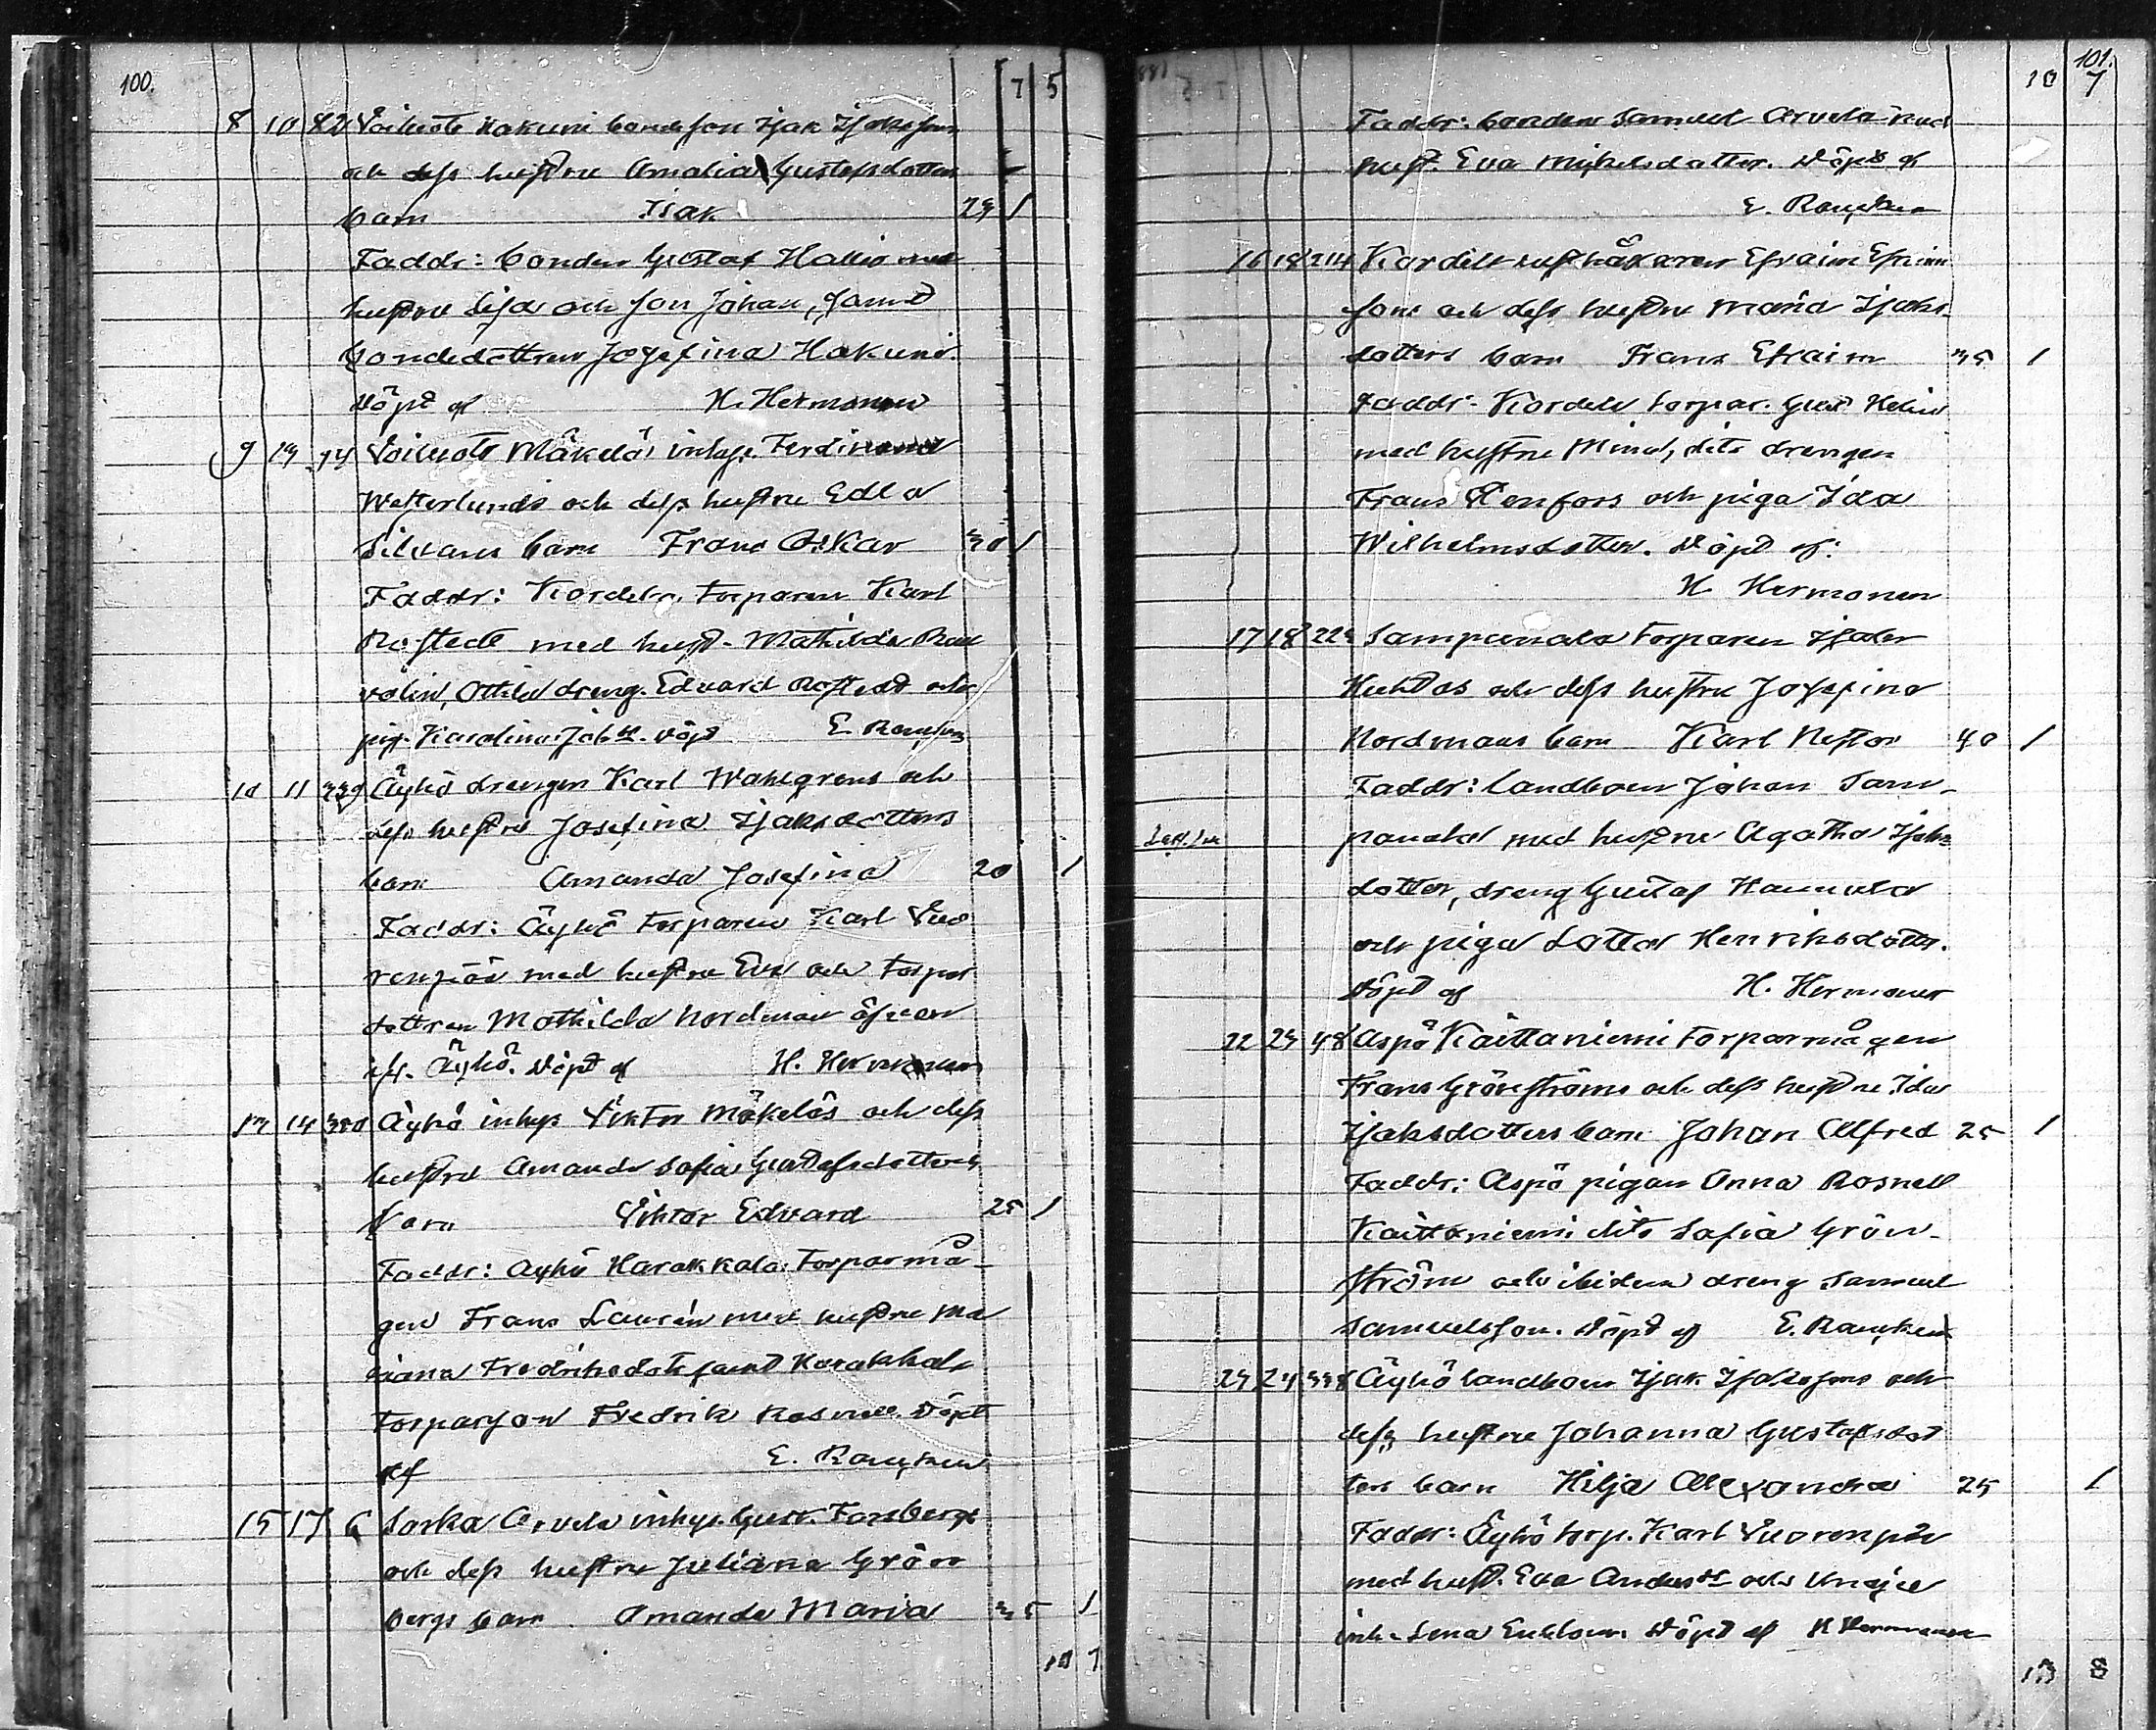 100.
7 5
8 10 82 Voiluoto Hakuni bondeson Isak Isakssons
och dess hustru Amalia Gustafsdotters
barn Isak 29 1
Faddr: bonden Gustaf Hallio med
hustru Lisa och son Johan, samt
bondedottren Josefina Hakuni.
Döpt af H. Hermonen
9 13 74 Voiluoto Mäkelä inhys. Ferdinand
Westerlunds och dess hustru Edla
Silvans barn Frans Oskar 30 1
Faddr: Kordel. torparen Karl
Rostedt med hust. Mathilda
Ottila dreng. Edvard Rostedt och
pig. Karolina Joh. döpt E. Rancken
10 11 339 Äyhö drengen Karl Wahlgrens och
dess hustru Josefina Isaksdotters
barn Amanda Josefina 20 1
Faddr: Äyhö torparen Karl Vuo
renpää med hustru Eva och torpar
dottren Mathilda Nordman
Äyhö. Döpt af H. Hermonen
13 14 350 Äyhö inhys Viktor Mäkeläs och dess
hustru Amanda Sofia Gustafsdotters
barn Viktor Edvard 25 1
Faddr: Äyhö Harakkala torparmå-
gen Frans Laurén med hustru Ma
riana Fredriksdott. samt Harakkala
torparson Fredrik Rosnell. Döpt
af E. Rancken
15 17 6 Sorka Arvela inhys. Gust. Forsbergs
och dess hustru Juliana Grön
bergs barn Amanda Maria 35 1
10 7
101.
10 7
Faddr: bonden Samuel Arvela med
hust. Eva Michelsdotter. Döpt af
E. Rancken
16 18 214 Kordelt Efraim Efraims
sons och dess hustru Maria Isaks-
dotters barn Frans Efraim 35 1
Faddr: Kordelt torpar. Gust. Helin
med hustru Mina, dito drengen
Frans Renfors och piga Ida
Wilhelmsdotter. Döpt af:
H Hermonen
17 18 Sampanala torparen
Huhtas och dess hustru Josefina
Nordmans barn Karl Nestor 40 1
Faddr: Landboen Johan Sam-
panala med hustru Agatha Isaks
dotter, dreng Gustaf Hannula
och piga Lotta Henriksdotter.
Döpt af H. Hermonen
22 23 48 Aspö Kaittaniemi torparmågen
Frans Grönströms och dess hustru Ida
Isaksdotters barn Johan Alfred 25 1
Faddr: Aspö pigan Anna Rosnell
Kaittaniemi dito Sofia Grön-
ström och ibidem dreng Samuel
Samuelsson. Döpt af E. Rancken
23 24 338 Äyhö landboen Isak Isakssons och
dess hustru Johanna Gustafsdot
ters barn Hilja Alexandra 25 1
Faddr: Äyhö torp. Karl Vuorenpää
med hust. Eva Andersdr och
inh. Lena Döpt af H Hermonen
13 8